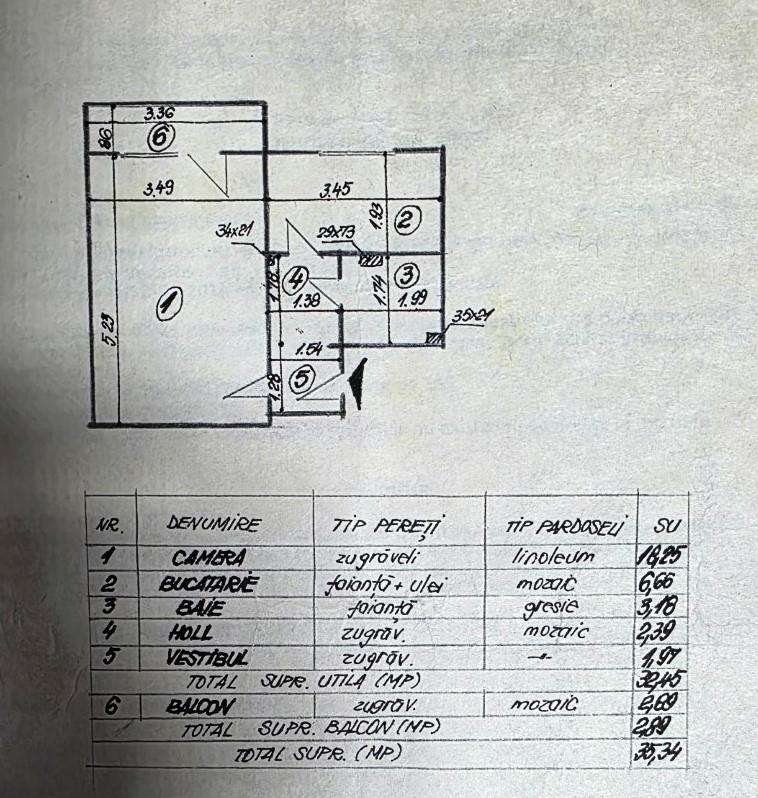 3.36
86
6
3.49
3.45
1.93
2
34x21
29x73
1
4
1.38
3
1.74
1.99
35x21
5.23
1.54
5
1.28
NR. DENUMIRE TIP PEREȚI TIP PARDOSELI SU
1 CAMERA zugrăveli linoleum 18,25
2 BUCATARIE faianță + ulei mozaic 6,66
3 BAIE faianță gresie 3,18
4 HOLL zugrăv. mozaic 2,39
5 VESTIBUL zugrăv. -"- 1,97
TOTAL SUPR. UTILA (MP) 32,45
6 BALCON zugrav. mozaic 2,89
TOTAL SUPR. BALCON (MP) 2,89
TOTAL SUPR. (MP) 35,34